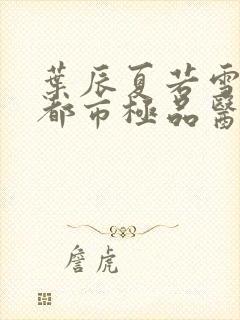 葉辰夏若雪
都市極品醫
詹虎